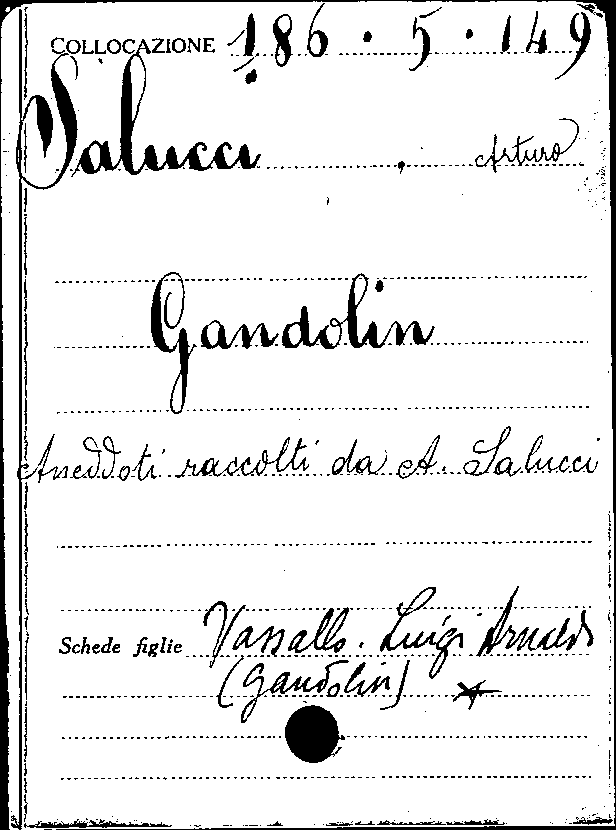 COLLOCAZIONE 186 . 5 . 149
Salucci , Arturo
Gandolin
Aneddoti raccolti da A. Salucci
Schede figlie Vassallo. Luigi Arnaldo
(Gandolin)